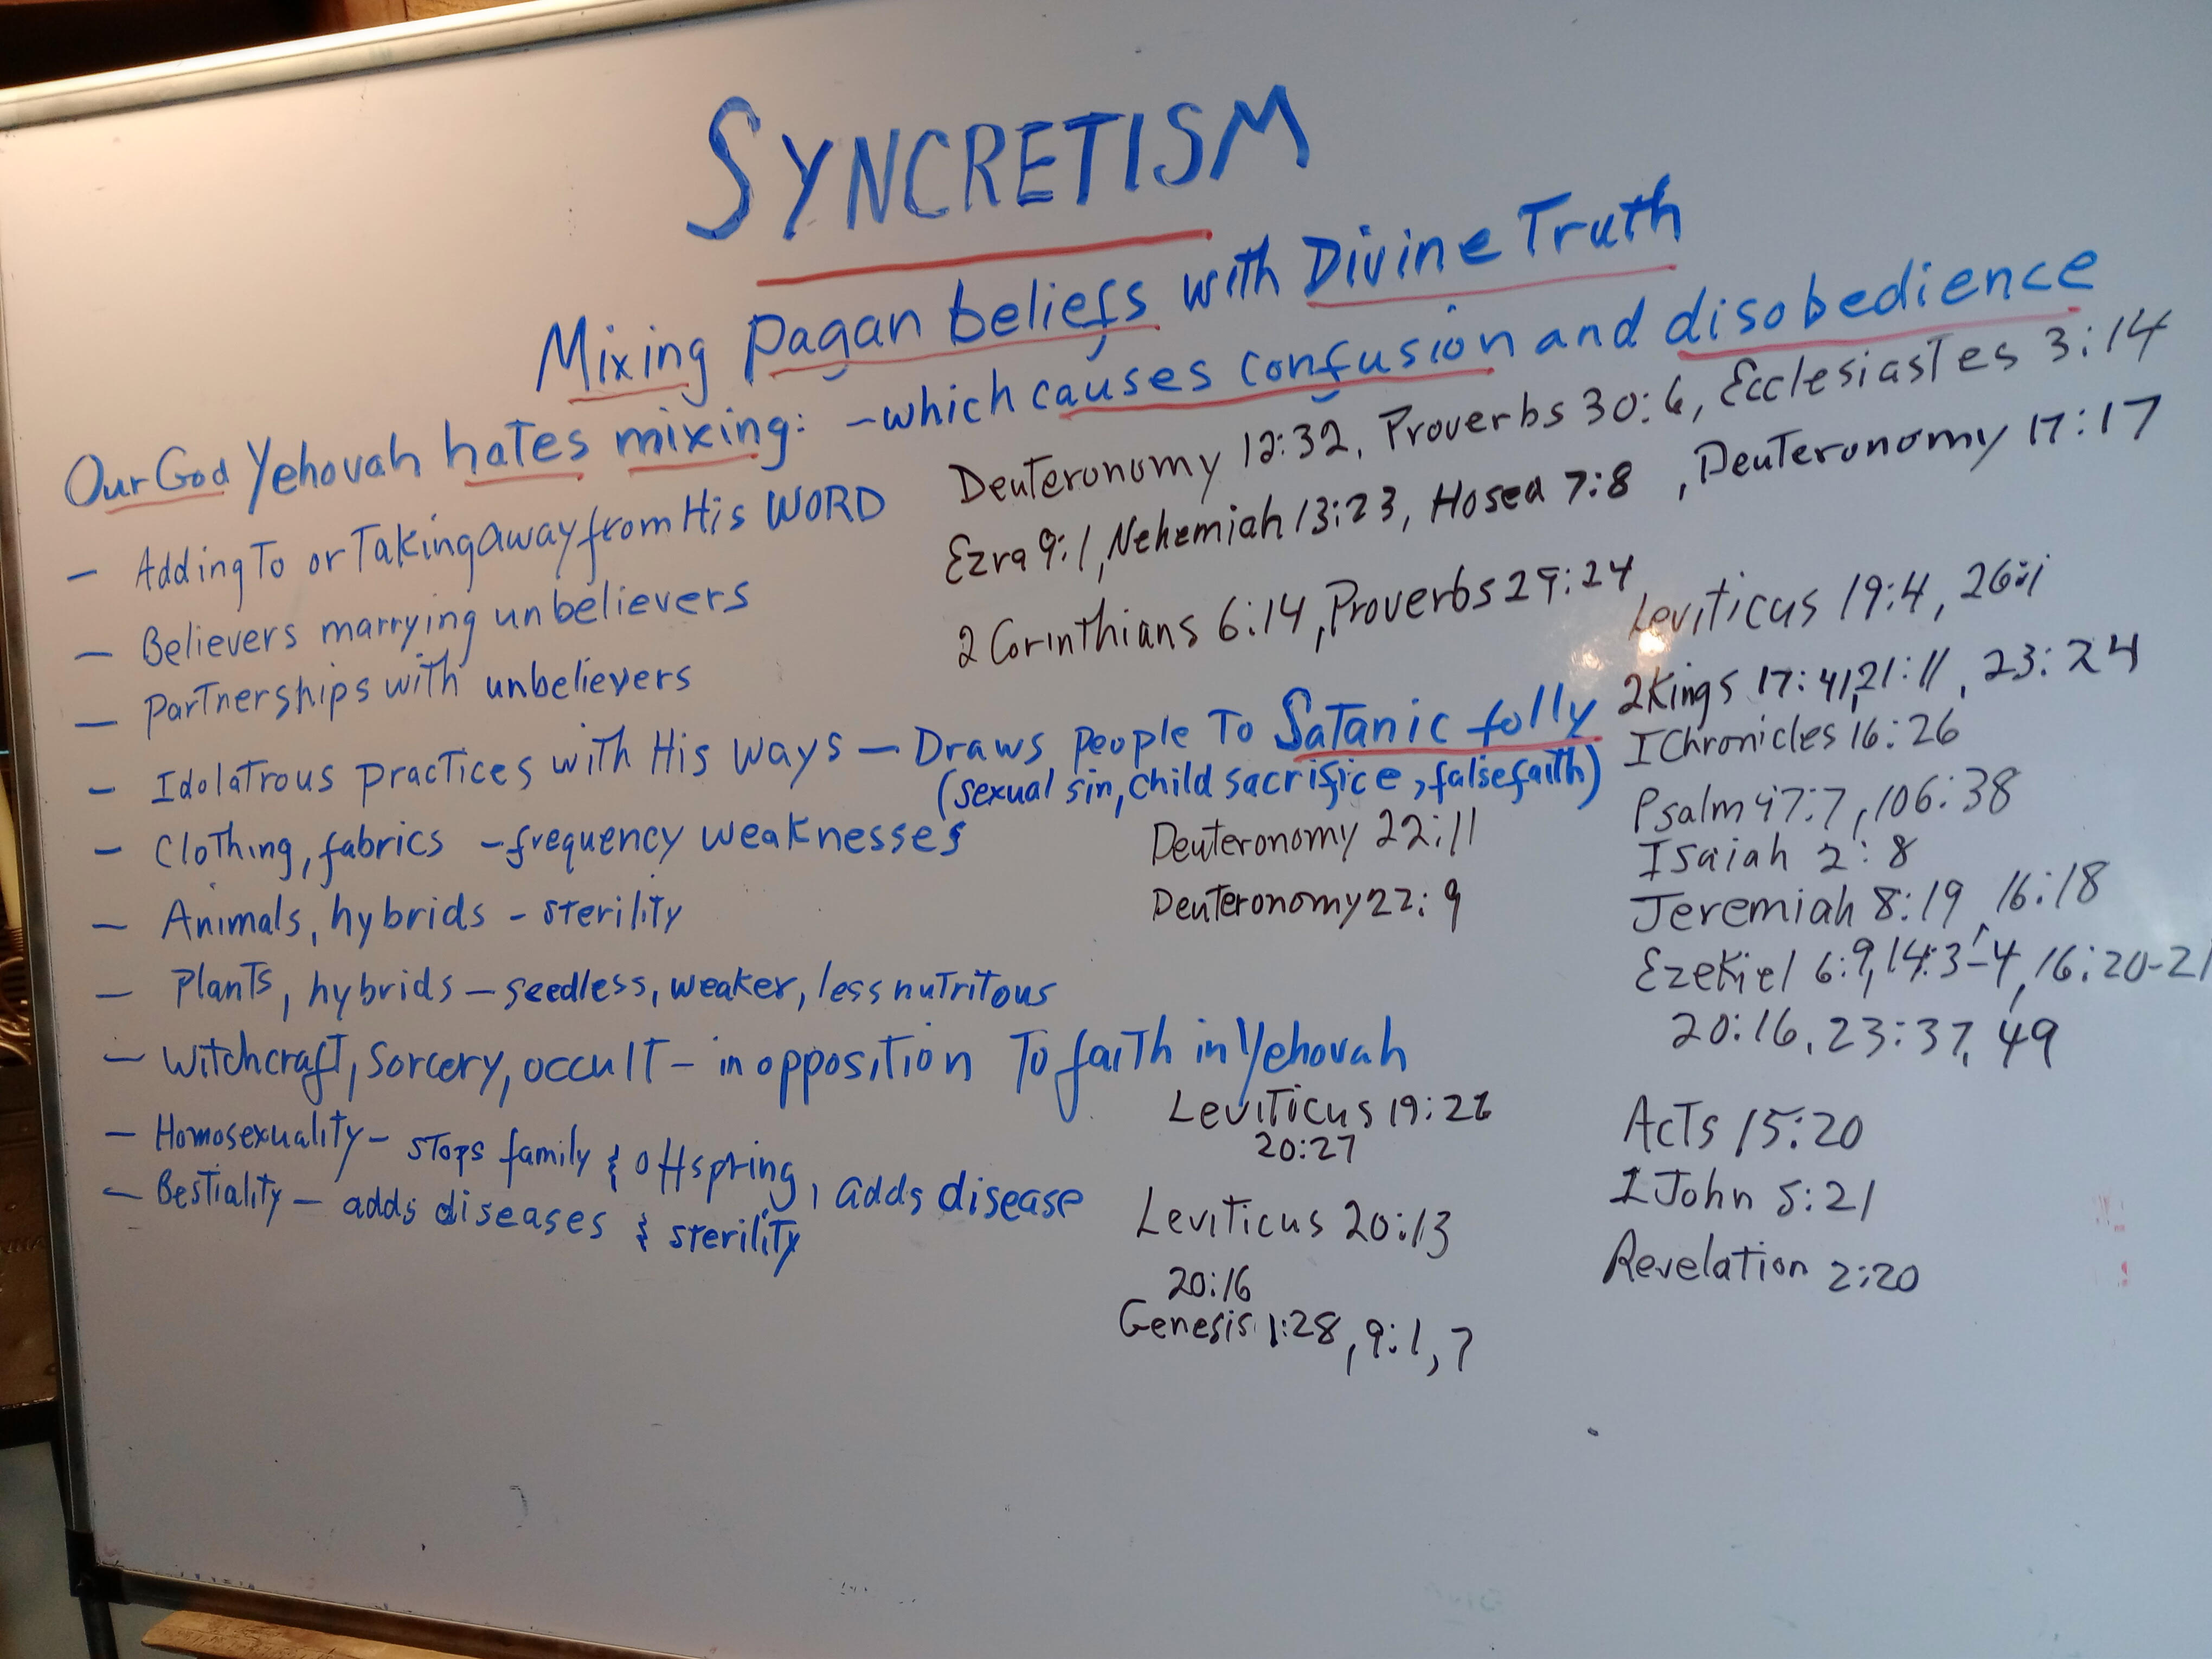 SYNCRETISM
Mixing pagan beliefs with Divine Truth
Our God Yehovah hates mixing: - which causes confusion and disobedience
- Adding To or Taking away from His WORD Deuteronomy 12:32, Proverbs 30:6, Ecclesiastes 3:14
- Believers marrying unbelievers Ezra 9:1, Nehemiah 13:23, Hosea 7:8, Deuteronomy 17:17
- Partnerships with unbelievers 2 Corinthians 6:14, Proverbs 29:24
- Idolatrous practices with His ways - Draws people To Satanic folly
(sexual sin, child sacrifice, false faith)
- Clothing, fabrics - frequency weaknesses Deuteronomy 22:11
- Animals, hybrids - sterility Deuteronomy 22:9
- Plants, hybrids - seedless, weaker, less nutritous
- Witchcraft, Sorcery, occult - in opposition To faith in Yehovah
Leviticus 19:26
20:27
- Homosexuality - stops family & offspring, adds disease
Leviticus 20:13
- Bestiality - adds diseases & sterility
20:16
Genesis 1:28, 9:1, 7
Leviticus 19:4, 26:1
2Kings 17:41, 21:11, 23:24
I Chronicles 16:26
Psalm 97:7, 106:38
Isaiah 2:8
Jeremiah 8:19, 16:18
Ezekiel 6:9, 14:3-4, 16:20-21
20:16, 23:37, 49
Acts 15:20
I John 5:21
Revelation 2:20